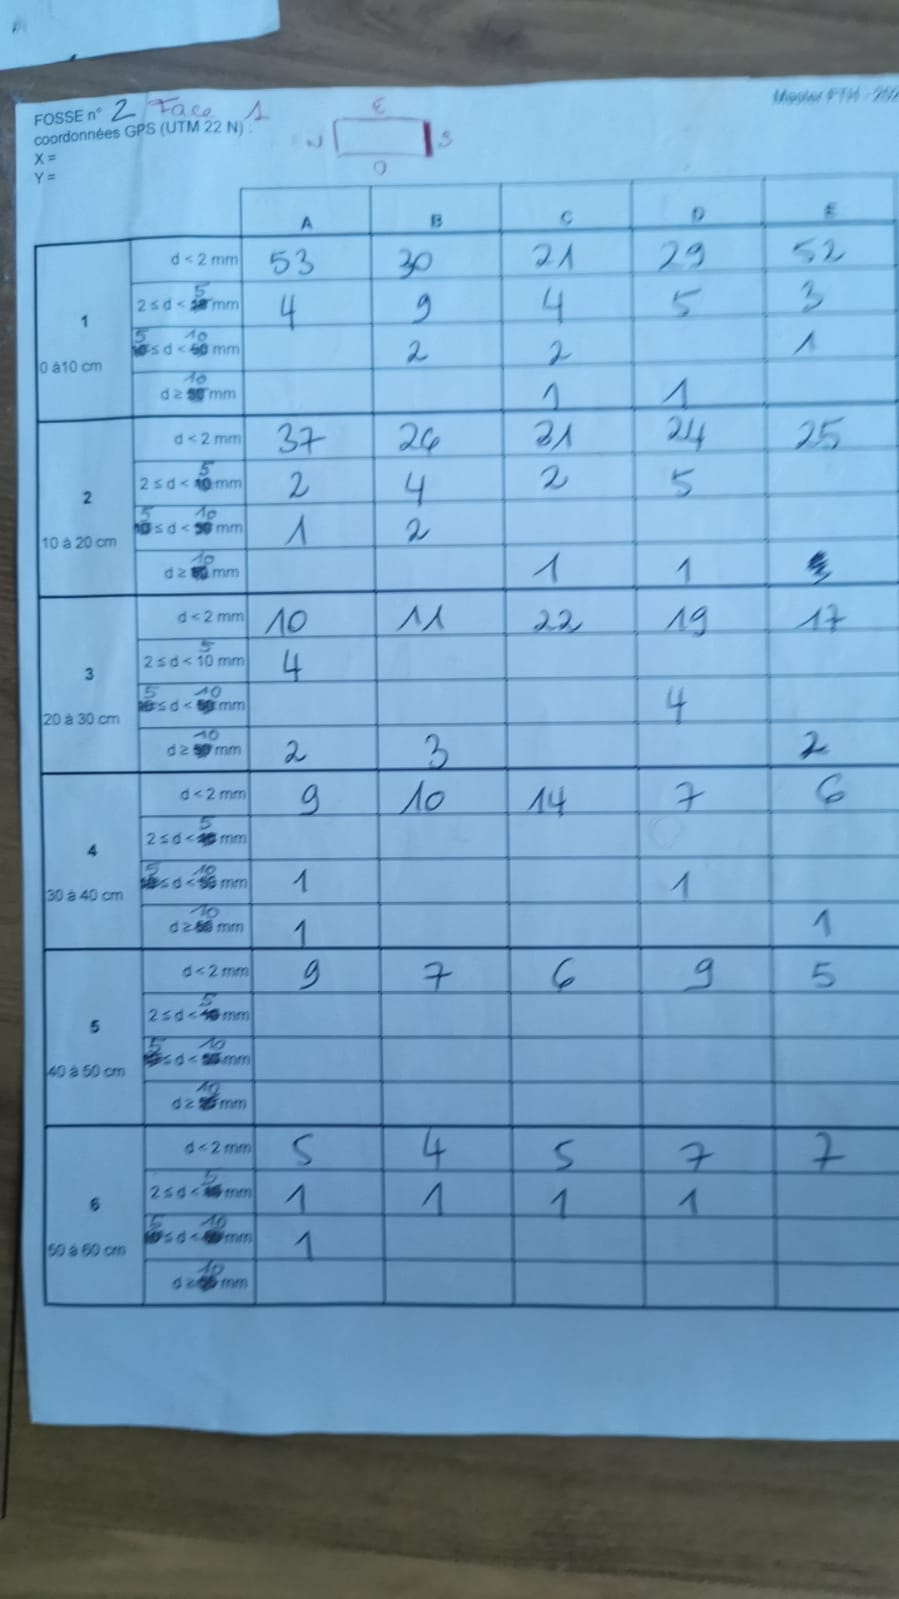 FOSSE n° 2 Face 1
coordonnées GPS (UTM 22 N) :
X =
Y =
E
N S
O
A B C D E
1
0 à 10 cm
d < 2 mm 53 30 21 29 52
2 ≤ d < 5 mm 4 9 4 5 3
5 ≤ d < 10 mm 2 2 1
d ≥ 10 mm 1 1
2
10 à 20 cm
d < 2 mm 37 26 24 25
2 ≤ d < 5 mm 2 4 2 5
5 ≤ d < 10 mm 1 2
d ≥ 10 mm 1 1
3
20 à 30 cm
d < 2 mm 10 11 22 19 17
2 ≤ d < 5 10 mm 4
5 ≤ d < 10 mm 4
d ≥ 10 mm 2 3 2
4
30 à 40 cm
d < 2 mm 9 10 14 7 6
2 ≤ d < 5 mm
5 ≤ d < 10 mm 1 1
d ≥ 10 mm 1 1
5
40 à 50 cm
d < 2 mm 9 7 6 9 5
2 ≤ d < 5 mm
5 ≤ d < 10 mm
d ≥ 10 mm
6
50 à 60 cm
d < 2 mm 5 4 5 7 7
2 ≤ d < 5 mm 1 1 1 1
5 ≤ d < 10 mm 1
d ≥ 10 mm